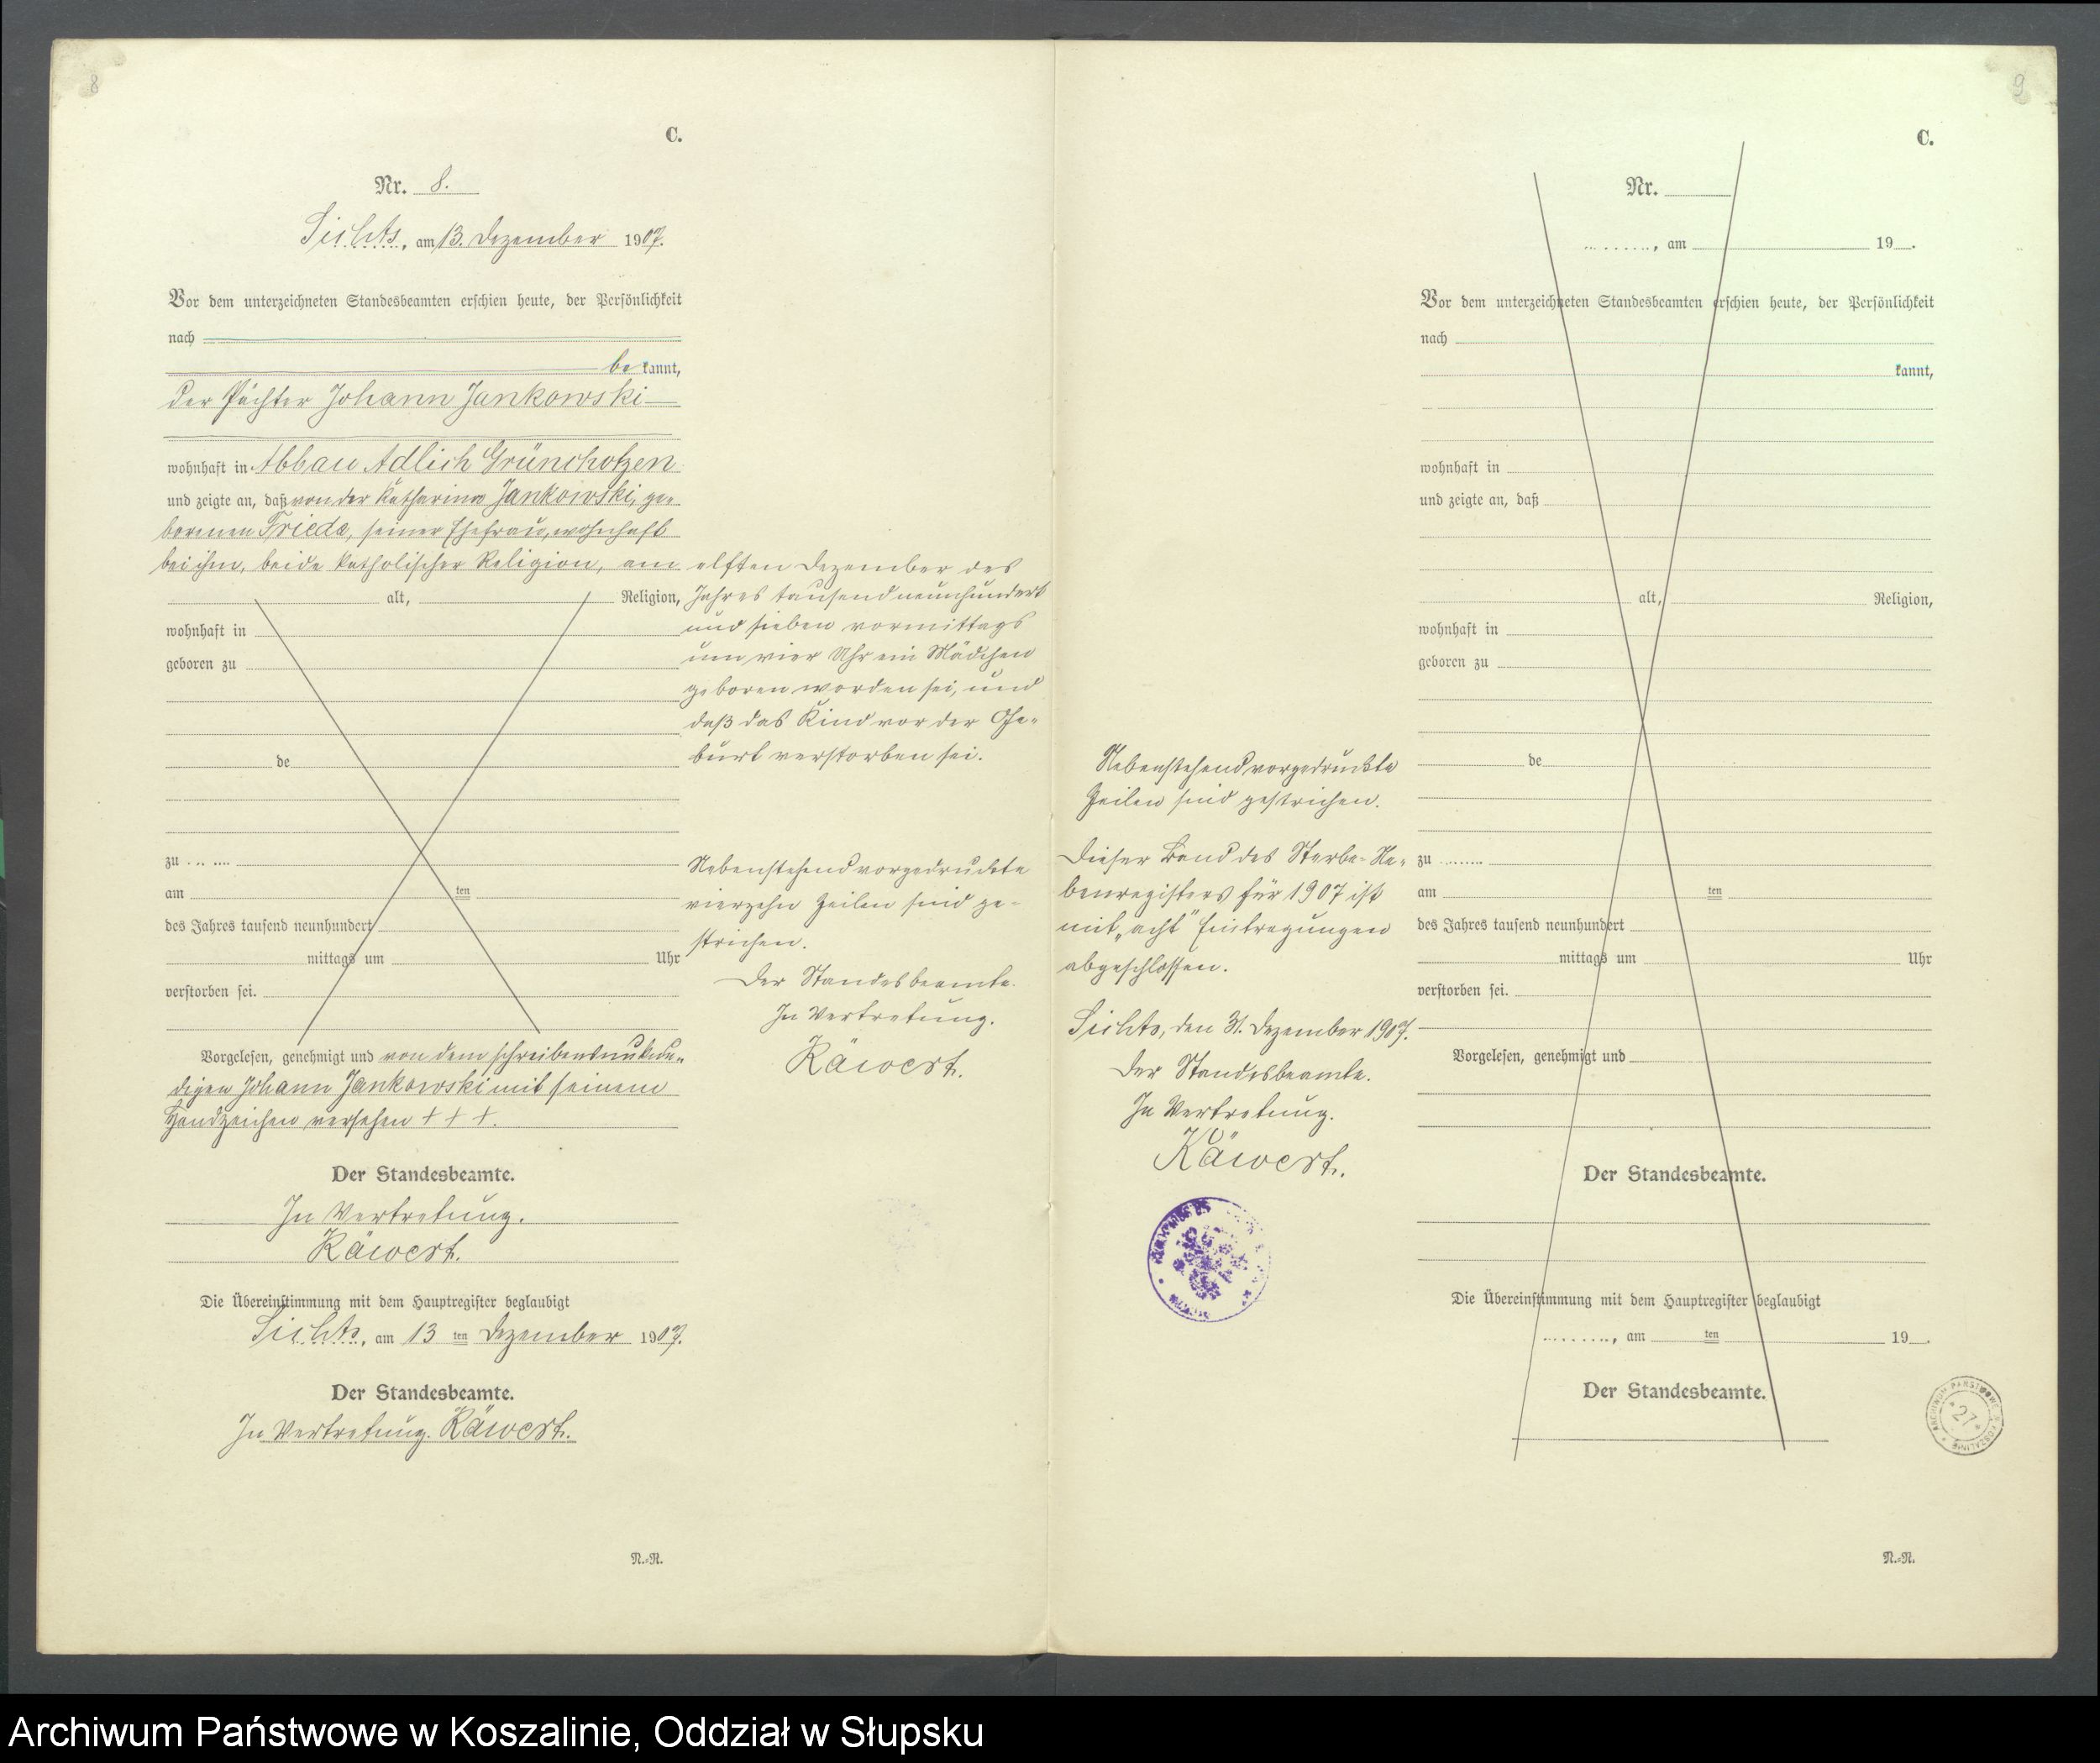 8
C.
Nr. 8.
Sichts, am 13. Dezember 1907.
Vor dem unterzeichneten Standesbeamten erschien heute, der Persönlichkeit
nach
be kannt,
der Pächter Johann Jankowski
wohnhaft in Abbau Adlich Grünchotzen
und zeigte an, daß von der Katharina Jankowski, ge-
borenen Frieda, seiner Ehefrau, wohnhaft
bei ihm, beide katholischer Religion, am elften Dezember des
alt, Religion, Jahres tausend neunhundert
wohnhaft in und sieben vormittags
geboren zu um vier Uhr ein Mädchen
geboren worden sei, und
daß das Kind vor der Ge-
de burt verstorben sei.
zu
Nebenstehend vorgedruckte
am ten vierzehn Zeilen sind ge-
des Jahres tausend neunhundert strichen.
mittags um Uhr
Der Standesbeamte.
verstorben sei.
In Vertretung.
Räwert.
Vorgelesen, genehmigt und von dem schreibensunkun-
digen Johann Jankowski mit seinem
Handzeichen versehen + + +.
Der Standesbeamte.
In Vertretung.
Räwert.
Die Übereinstimmung mit dem Hauptregister beglaubigt
Sichts, am 13 ten Dezember 1907.
Der Standesbeamte.
In Vertretung. Räwert.
N.=R.
9
C.
Nr.
, am 19 .
Vor dem unterzeichneten Standesbeamten erschien heute, der Persönlichkeit
nach
kannt,
wohnhaft in
und zeigte an, daß
alt, Religion,
wohnhaft in
geboren zu
Nebenstehend vorgedruckte de
Zeilen sind gestrichen.
Dieser Band des Sterbe-Ne- zu
benregisters für 1907 ist am ten
mit „acht" Eintragungen des Jahres tausend neunhundert
abgeschlossen. mittags um Uhr
verstorben sei.
Sichts, den 31. Dezember 1907.
Der Standesbeamte. Vorgelesen, genehmigt und
In Vertretung.
Räwert.
Der Standesbeamte.
Die Übereinstimmung mit dem Hauptregister beglaubigt
, am ten 19 .
Der Standesbeamte.
ARCHIWUM PAŃSTWOWE W KOSZALINIE
27
N.=R.
Archiwum Państwowe w Koszalinie, Oddział w Słupsku